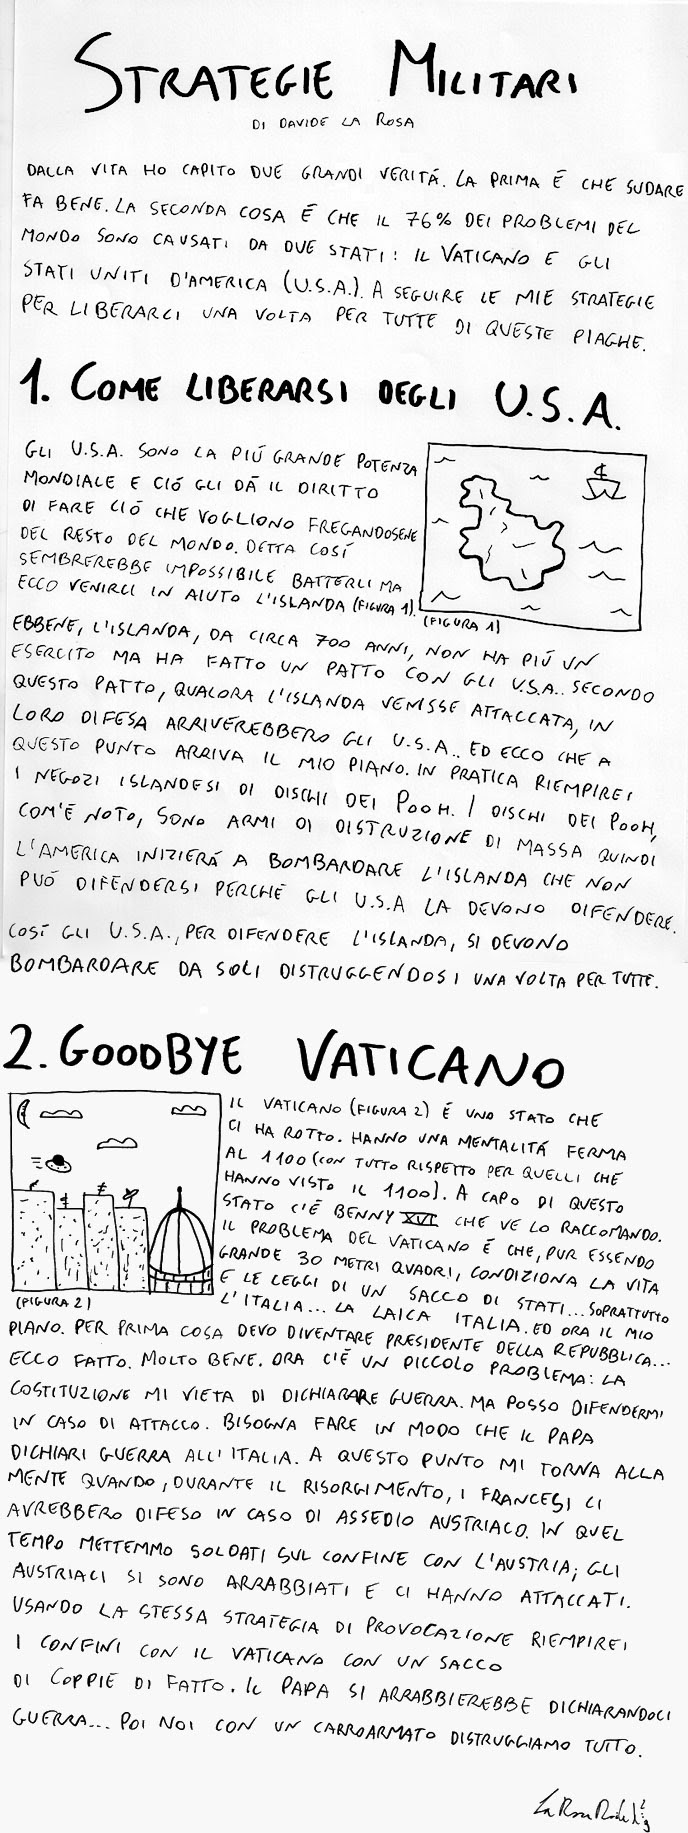 STRATEGIE MILITARI
DI DAVIDE LA ROSA
DALLA VITA HO CAPITO DUE GRANDI VERITÁ. LA PRIMA É CHE SUDARE
FA BENE. LA SECONDA COSA É CHE IL 76% DEI PROBLEMI DEL
MONDO SONO CAUSATI DA DUE STATI: IL VATICANO E GLI
STATI UNITI D'AMERICA (U.S.A.). A SEGUIRE LE MIE STRATEGIE
PER LIBERARCI UNA VOLTA PER TUTTE DI QUESTE PIAGHE.
1. COME LIBERARSI DEGLI U.S.A.
GLI U.S.A. SONO LA PIÚ GRANDE POTENZA
MONDIALE E CIÓ GLI DÁ IL DIRITTO
DI FARE CIÓ CHE VOGLIONO FREGANDOSENE
DEL RESTO DEL MONDO. DETTA COSÍ
SEMBREREBBE IMPOSSIBILE BATTERLI MA
ECCO VENIRCI IN AIUTO L'ISLANDA (FIGURA 1).
(FIGURA 1)
EBBENE, L'ISLANDA, DA CIRCA 700 ANNI, NON HA PIÚ UN
ESERCITO MA HA FATTO UN PATTO CON GLI U.S.A.. SECONDO
QUESTO PATTO, QUALORA L'ISLANDA VENISSE ATTACCATA, IN
LORO DIFESA ARRIVEREBBERO GLI U.S.A.. ED ECCO CHE A
QUESTO PUNTO ARRIVA IL MIO PIANO. IN PRATICA RIEMPIREI
I NEGOZI ISLANDESI DI DISCHI DEI POOH. I DISCHI DEI POOH,
COM'É NOTO, SONO ARMI DI DISTRUZIONE DI MASSA QUINDI
L'AMERICA INIZIERÁ A BOMBARDARE L'ISLANDA CHE NON
PUÓ DIFENDERSI PERCHÉ GLI U.S.A LA DEVONO DIFENDERE.
COSÍ GLI U.S.A., PER DIFENDERE L'ISLANDA, SI DEVONO
BOMBARDARE DA SOLI DISTRUGGENDOSI UNA VOLTA PER TUTTE.
2. GOODBYE VATICANO
IL VATICANO (FIGURA 2) É UNO STATO CHE
CI HA ROTTO. HANNO UNA MENTALITÁ FERMA
AL 1100 (CON TUTTO RISPETTO PER QUELLI CHE
HANNO VISTO IL 1100). A CAPO DI QUESTO
STATO C'É BENNY XVI CHE VE LO RACCOMANDO.
IL PROBLEMA DEL VATICANO É CHE, PUR ESSENDO
GRANDE 30 METRI QUADRI, CONDIZIONA LA VITA
E LE LEGGI DI UN SACCO DI STATI... SOPRATTUTTO
L'ITALIA... LA LAICA ITALIA. ED ORA IL MIO
(FIGURA 2)
PIANO. PER PRIMA COSA DEVO DIVENTARE PRESIDENTE DELLA REPUBBLICA...
ECCO FATTO. MOLTO BENE. ORA C'É UN PICCOLO PROBLEMA: LA
COSTITUZIONE MI VIETA DI DICHIARARE GUERRA. MA POSSO DIFENDERMI
IN CASO DI ATTACCO. BISOGNA FARE IN MODO CHE IL PAPA
DICHIARI GUERRA ALL'ITALIA. A QUESTO PUNTO MI TORNA ALLA
MENTE QUANDO, DURANTE IL RISORGIMENTO, I FRANCESI CI
AVREBBERO DIFESO IN CASO DI ASSEDIO AUSTRIACO. IN QUEL
TEMPO METTEMMO SOLDATI SUL CONFINE CON L'AUSTRIA; GLI
AUSTRIACI SI SONO ARRABBIATI E CI HANNO ATTACCATI.
USANDO LA STESSA STRATEGIA DI PROVOCAZIONE RIEMPIREI
I CONFINI CON IL VATICANO CON UN SACCO
DI COPPIE DI FATTO. IL PAPA SI ARRABBIEREBBE DICHIARANDOCI
GUERRA... POI NOI CON UN CARROARMATO DISTRUGGIAMO TUTTO.
La Rosa